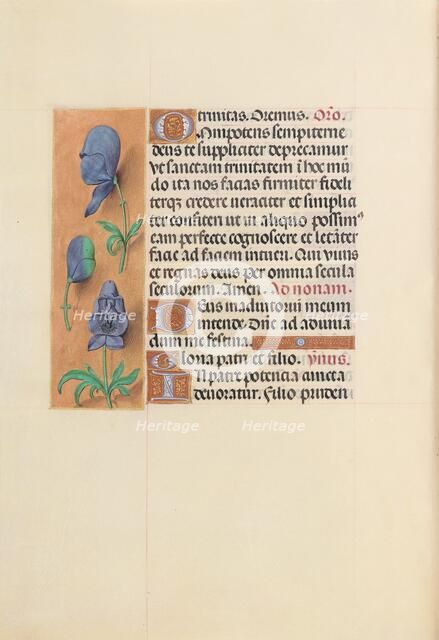 trinitas. Oremus. Oro.
Omnipotens sempiterne
deus te suppliciter deprecamur
vt sanctam trinitatem i hoc mu
do ita nos facias firmiter fideli
terqz credere veraciter et simplici
ter confiteri ut in aliquo possim
eam perfecte cognoscere et letanter
facie ad faciem intueri. Qui viuis
et regnas deus per omnia secula
seculorum. Amen. Ad nonam.
Deus in adiutoriu meum
intende. Dne ad adiuua
dum me festina.
Gloria patri et filio. ymus.
In patre potencia cuncta
deuoratur. Filio pruden
Heritage
Heritage
Heritage
Heritage
Heritage
Heritage